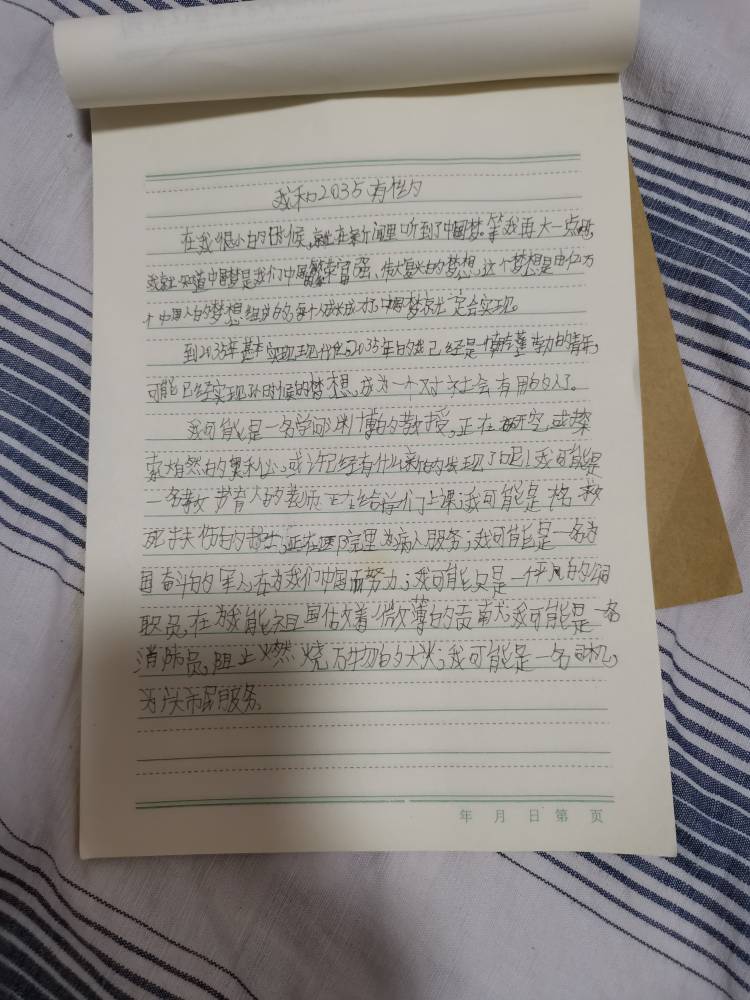 我和2035有个约
在我很小的时候,就在新闻里听到了中国梦。等我再大一点时,
我就知道中国梦是我们中国繁荣富强、伟大复兴的梦想,这个梦想是由亿万
个中国人的梦想组成的,每个人成功,中国梦就一定会实现。
到2035年基本实现现代化。2035年的我已经是青年,
可能已经实现小时候的梦想,成为一个对社会有用的人了。
我可能是一名学问渊博的教授,正在研究,或探
索大自然的奥秘,或许已经有什么新的发现了呢!我可能是
一名教书育人的老师正在给学生们上课;我可能是一名救
死扶伤的护士,正在医院里为病人服务;我可能是一名为
国奋斗的军人,在为我们中国而努力;我可能只是一个平凡的公司
职员,在为我的祖国做着微薄的贡献;我可能是一名
消防员,阻止燃烧万物的大火;我可能是一名司机,
为广大市民服务。
年 月 日 第 页